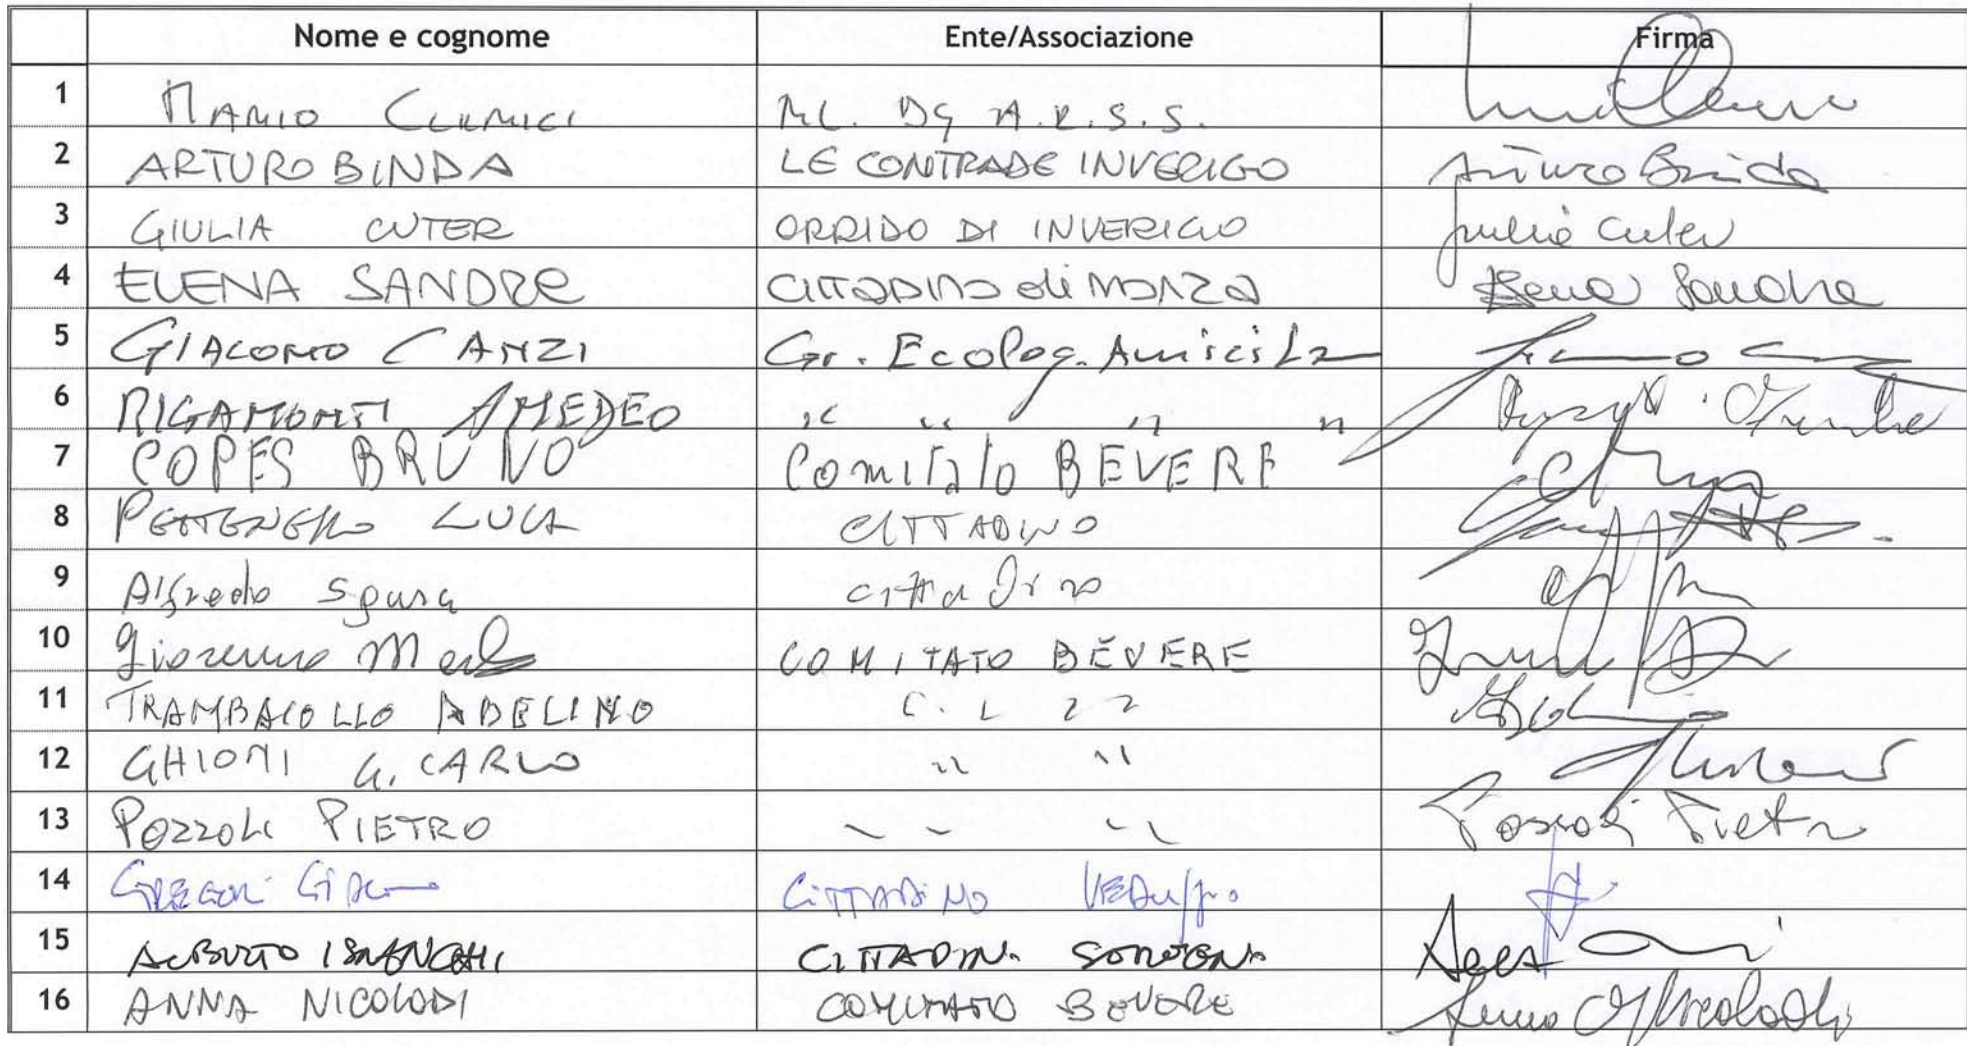 Nome e cognome Ente/Associazione Firma
1 MARIO CLERICI
2 ARTURO BINDA LE CONTRADE INVERIGO Arturo Binda
3 GIULIA CUTER ORRIDO DI INVERIGO Giulia Cuter
4 ELENA SANDRE CITTADINO di MONZA Elena Sandre
5 GIACOMO CANZI Gr. Ecolog.
6 RIGAMONTI AMEDEO " " " "
7 COPES BRUNO Comitato BEVERE
8 LUCA CITTADINO
9 Alfredo Sgura cittadino
10 COMITATO BEVERE
11 TRAMBACOLLO ADELINO
12 GHIONI G. CARLO " "
13 POZZOLI PIETRO " " Pozzoli Pietro
14 CITTADINO
15 ALBERTO
16 ANNA NICOLODI COMITATO BEVERE Nicolodi